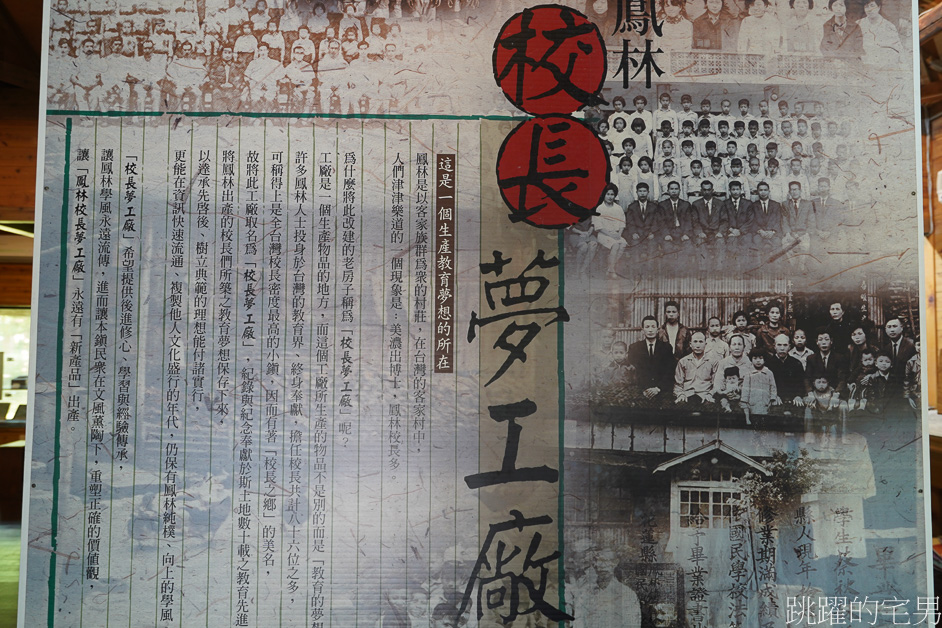 鳳林
校長夢工廠
這是一個生產教育夢想的所在
鳳林是以客家族群為眾的村莊，在台灣的客家村中，
人們津津樂道的一個現象是：美濃出博士，鳳林校長多。
為什麼將此改建的老房子稱為「校長夢工廠」呢？
工廠是一個生產物品的地方，而這個工廠所生產的物品不是別的而是「教育的夢想
許多鳳林人士投身於台灣的教育界、終身奉獻，擔任校長共計八十六位之多，
可稱得上是全台灣校長密度最高的小鎮，因而有著「校長之鄉」的美名，
故將此工廠取名為「校長夢工廠」，紀錄與紀念奉獻於斯土地數十載之教育先進
將鳳林出產的校長們所築之教育夢想保存下來，
以遂承先啓後、樹立典範的理想能付諸實行，
更能在資訊快速流通、複製他人文化盛行的年代，仍保有鳳林純樸、向上的學風
「校長夢工廠」希望提供後進修心、學習與經驗傳承，
讓鳳林學風永遠流傳，進而讓本鎮民眾在文風薰陶下，重塑正確的價值觀，
讓「鳳林校長夢工廠」永遠有「新產品」出產。
畢業
學生蔡
縣人現年
修業期滿成績
國民學校法
給予畢業證書
花蓮縣
跳躍的宅男